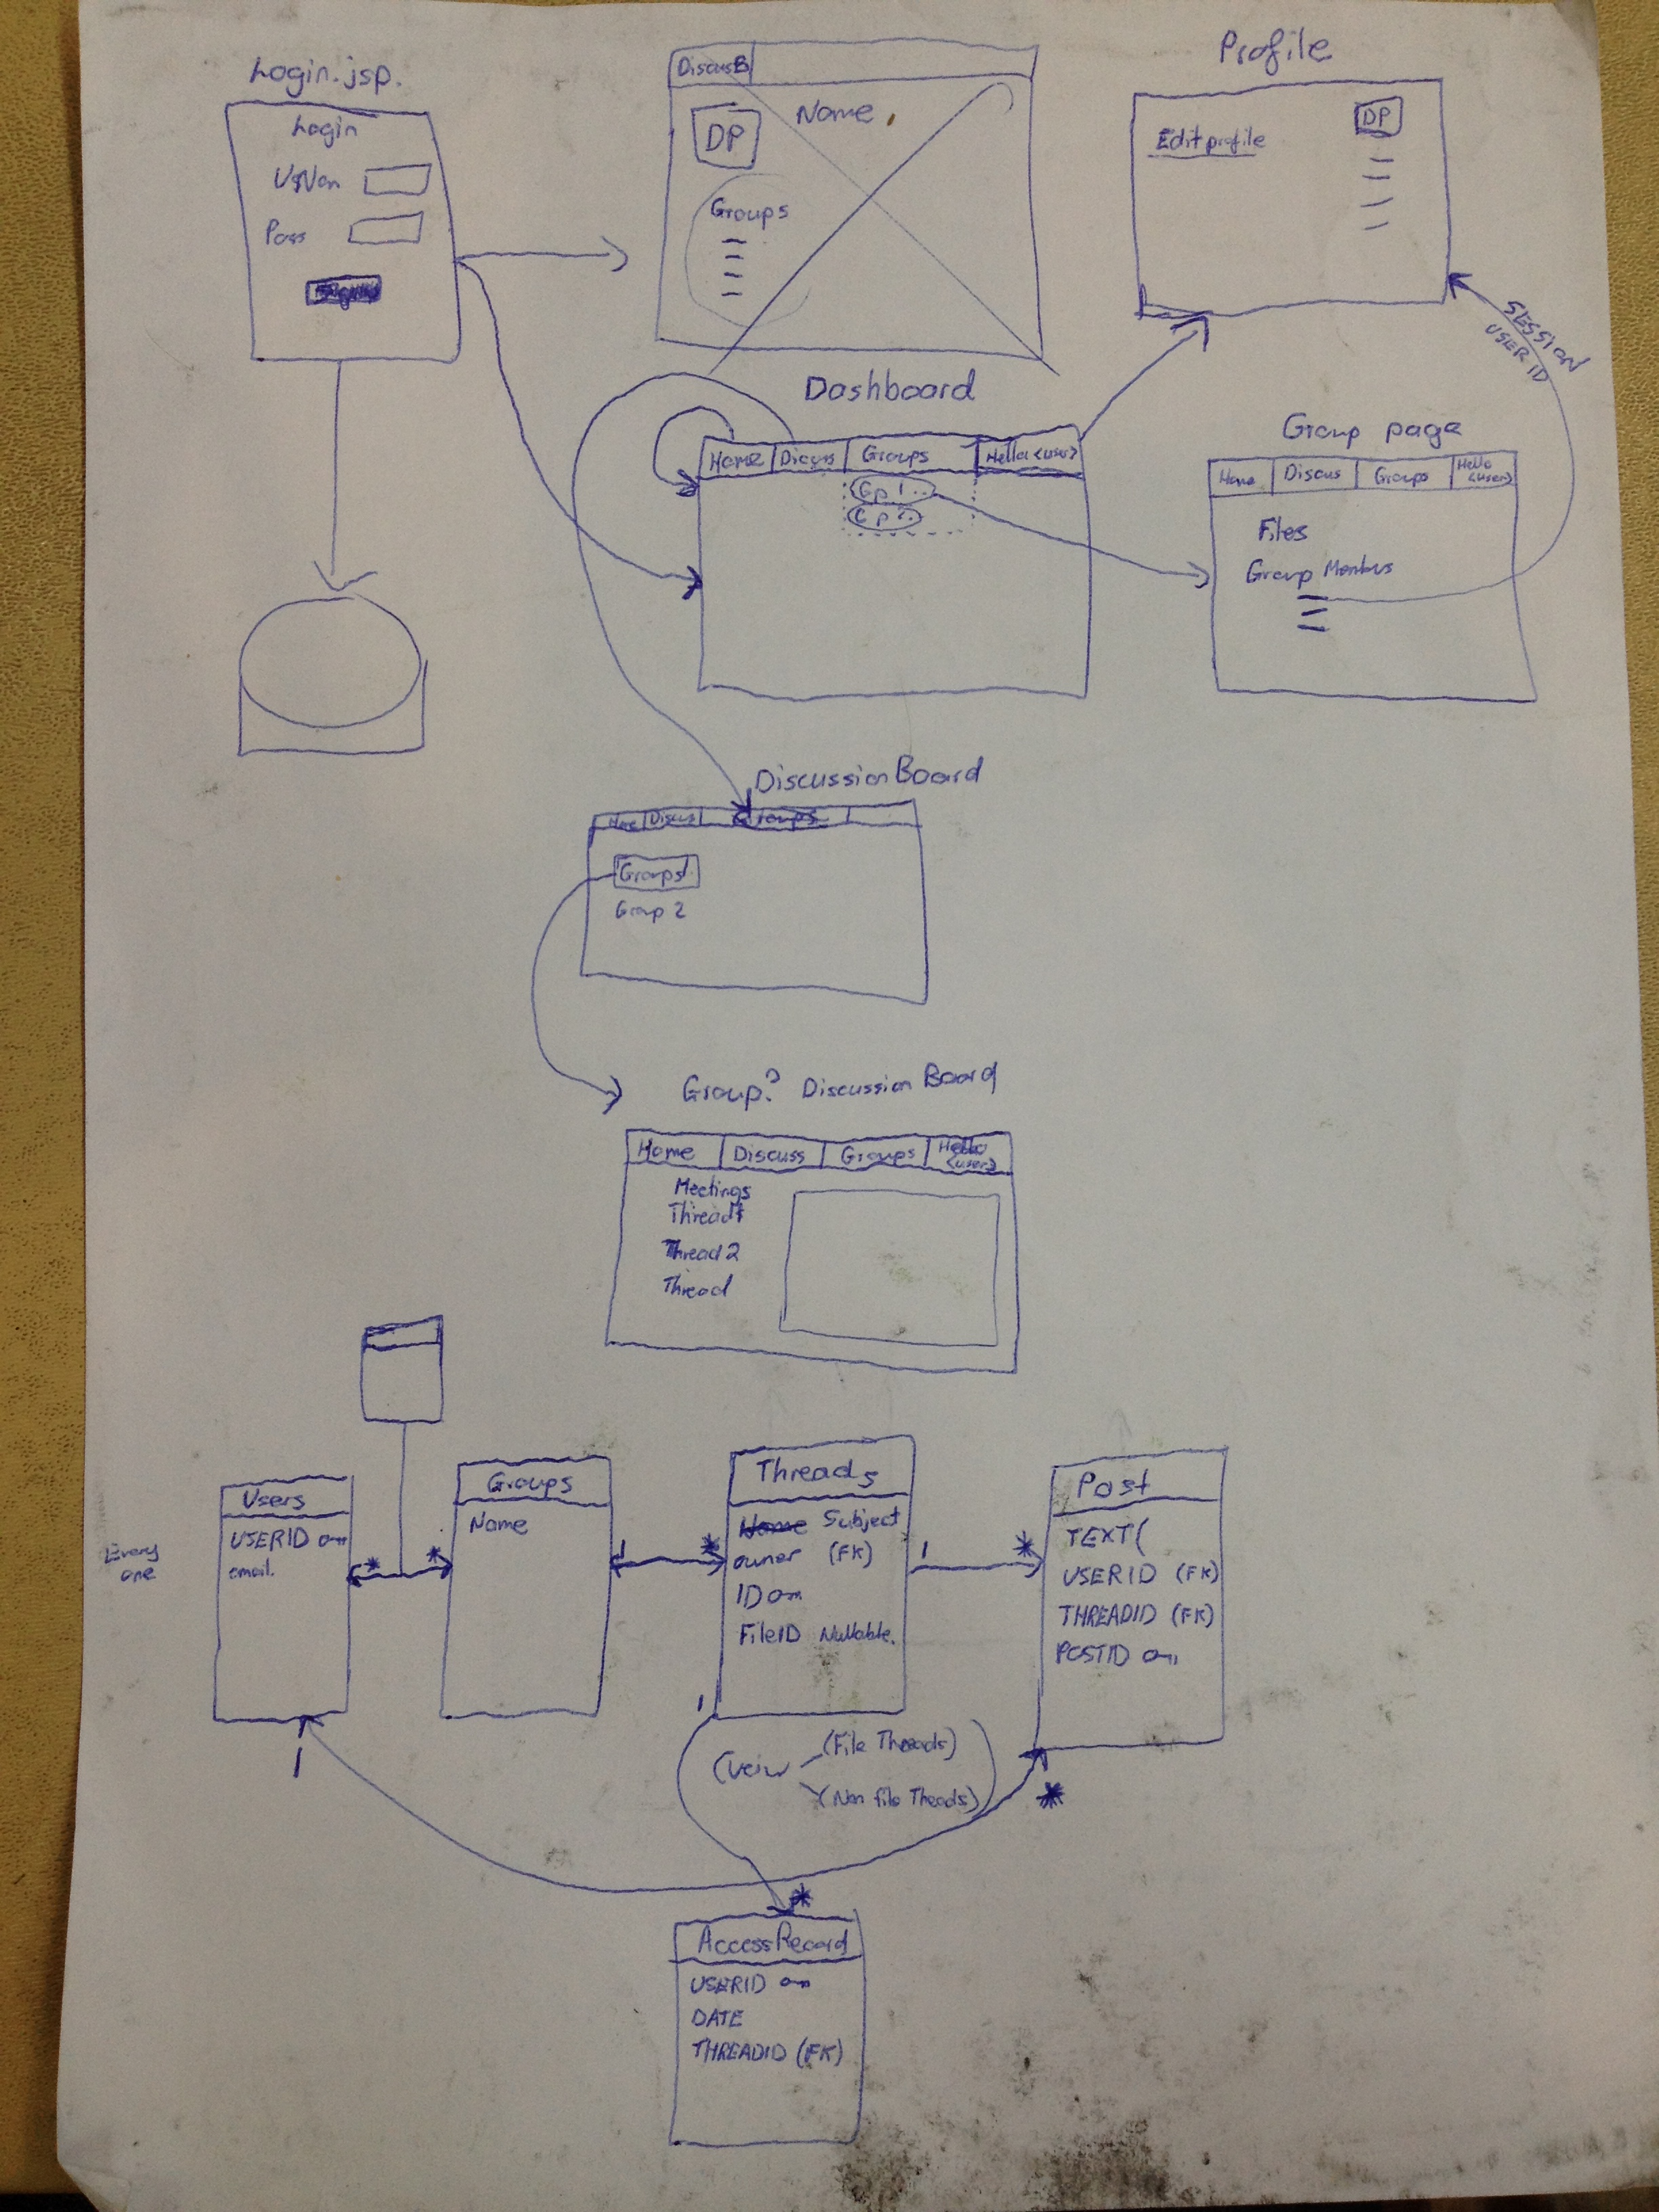 Login.jsp.
Login
UsNam
Pass
DiscusB
Name
DP
Groups
Profile
DP
Edit profile
SESSION
USER ID
Dashboard
Home Discuss Groups Hello <user>
Gp 1..
Gp 2.
Group page
Home Discus Groups Hello <user>
Files
Group Members
Discussion Board
Home Discus Groups
Groups1
Group 2
Group? Discussion Board
Home Discuss Groups Hello <user>
Meetings
Thread1
Thread 2
Thread
Every one
Users
USERID
email.
* *
Groups
Name
1 *
Threads
Name Subject
owner (FK)
ID
FileID Nullable.
1 *
Post
TEXT(
USERID (FK)
THREADID (FK)
POSTID
1
1
(veiw (File Threads)
(Non file Theads)
*
*
AccessRecord
USERID
DATE
THREADID (FK)